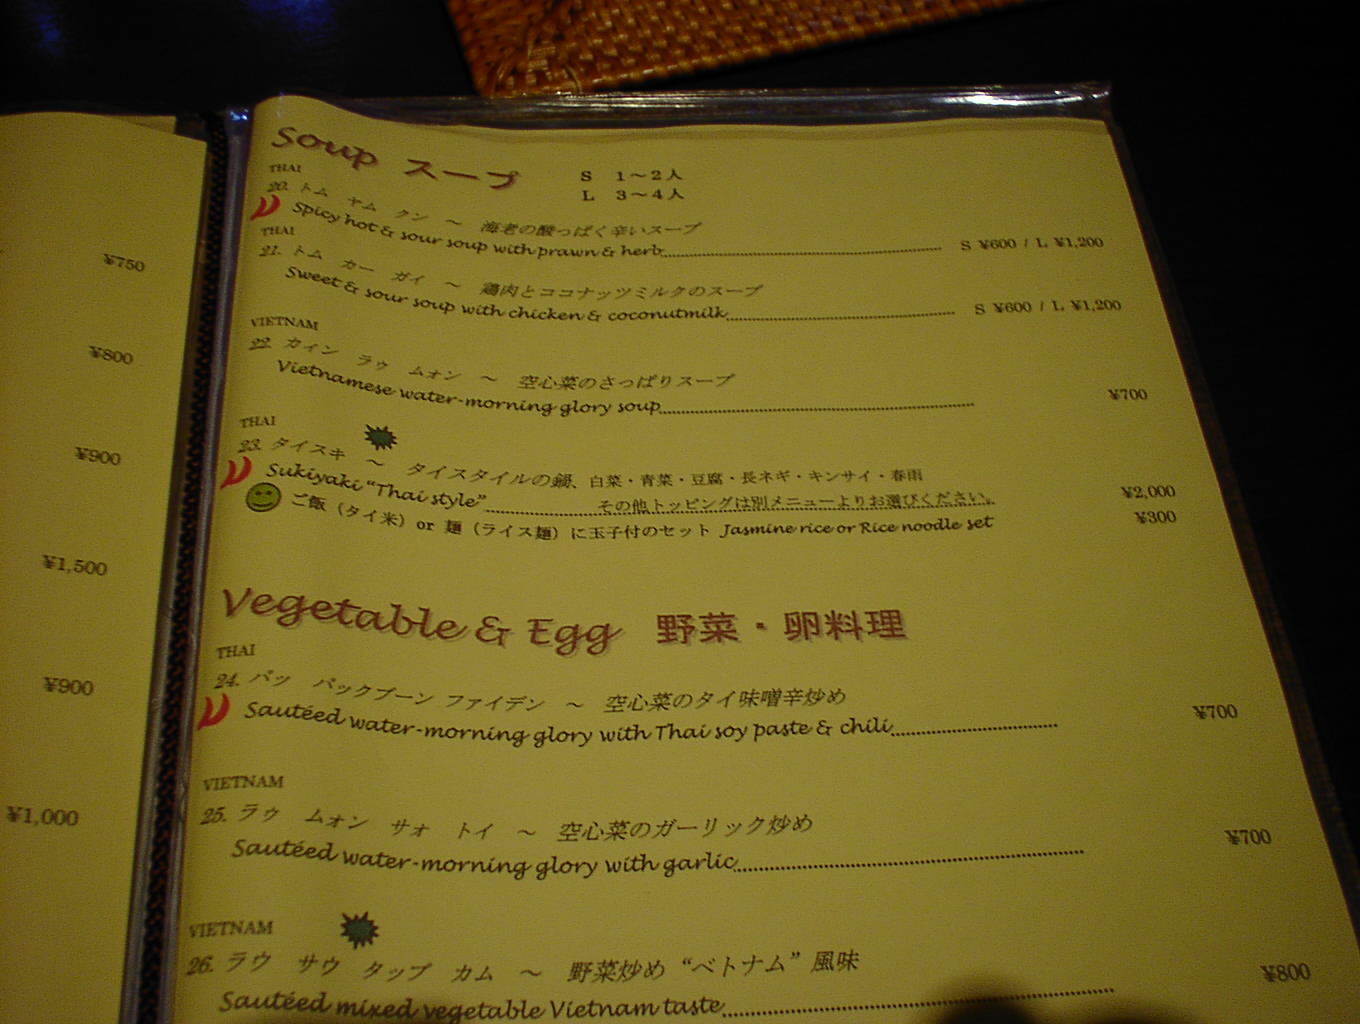 ¥750
¥800
¥900
¥1,500
¥900
¥1,000
Soup スープ
S 1～2人
L 3～4人
THAI
20. トム ヤム クン ～ 海老の酸っぱく辛いスープ
Spicy hot & sour soup with prawn & herb S ¥600 / L ¥1,200
THAI
21. トム カー ガイ ～ 鶏肉とココナッツミルクのスープ
Sweet & sour soup with chicken & coconutmilk S ¥600 / L ¥1,200
VIETNAM
22. カィン ラゥ ムォン ～ 空心菜のさっぱりスープ
Vietnamese water-morning glory soup ¥700
THAI
23. タイスキ ～ タイスタイルの鍋、白菜・青菜・豆腐・長ネギ・キンサイ・春雨
Sukiyaki "Thai style" その他トッピングは別メニューよりお選びください。 ¥2,000
ご飯（タイ米）or 麺（ライス麺）に玉子付のセット Jasmine rice or Rice noodle set ¥300
Vegetable & Egg 野菜・卵料理
THAI
24. パッ パックブーン ファイデン ～ 空心菜のタイ味噌辛炒め
Sautéed water-morning glory with Thai soy paste & chili ¥700
VIETNAM
25. ラゥ ムォン サォ トイ ～ 空心菜のガーリック炒め
Sautéed water-morning glory with garlic ¥700
VIETNAM
26. ラウ サウ タップ カム ～ 野菜炒め “ベトナム” 風味
Sautéed mixed vegetable Vietnam taste ¥800